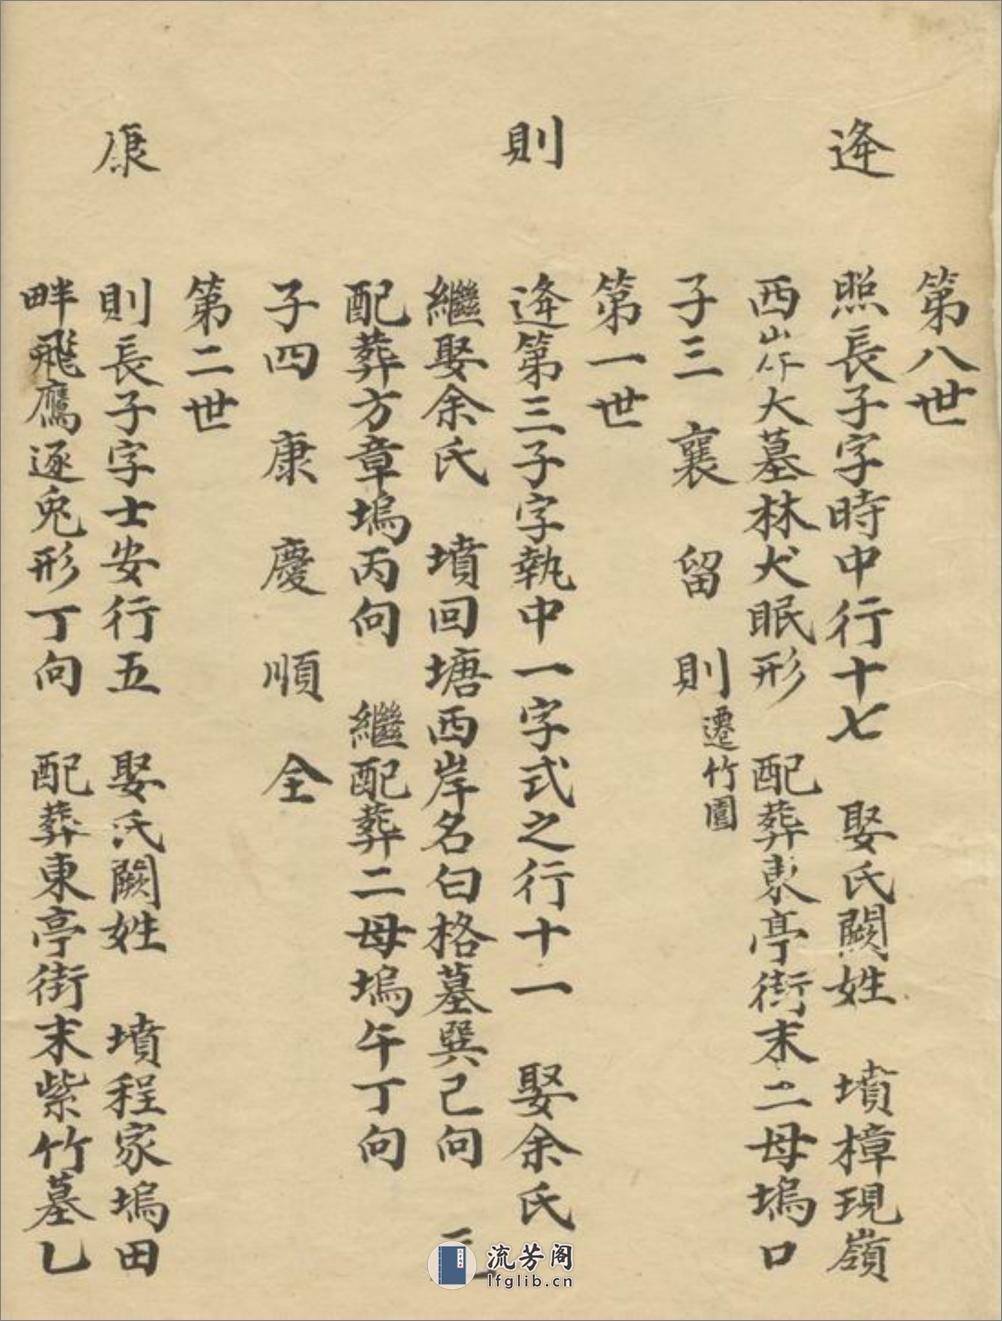 第八世
逄 照長子字時中行十七 娶氏闕姓 墳樟現嶺
西山作大墓林犬眠形 配葬東亭街末二母塢口
子三 襄 留 則遷竹園
第一世
則 逄第三子字執中一字式之行十一 娶余氏
繼娶余氏 墳回塘西岸名白格墓巽己向
配葬方章塢丙向 繼配葬二母塢午丁向
子四 康 慶 順 全
第二世
康 則長子字士安行五 娶氏闕姓 墳程家塢田
畔飛鷹逐兎形丁向 配葬東亭街末紫竹墓乚
流芳阁
lfglib.cn